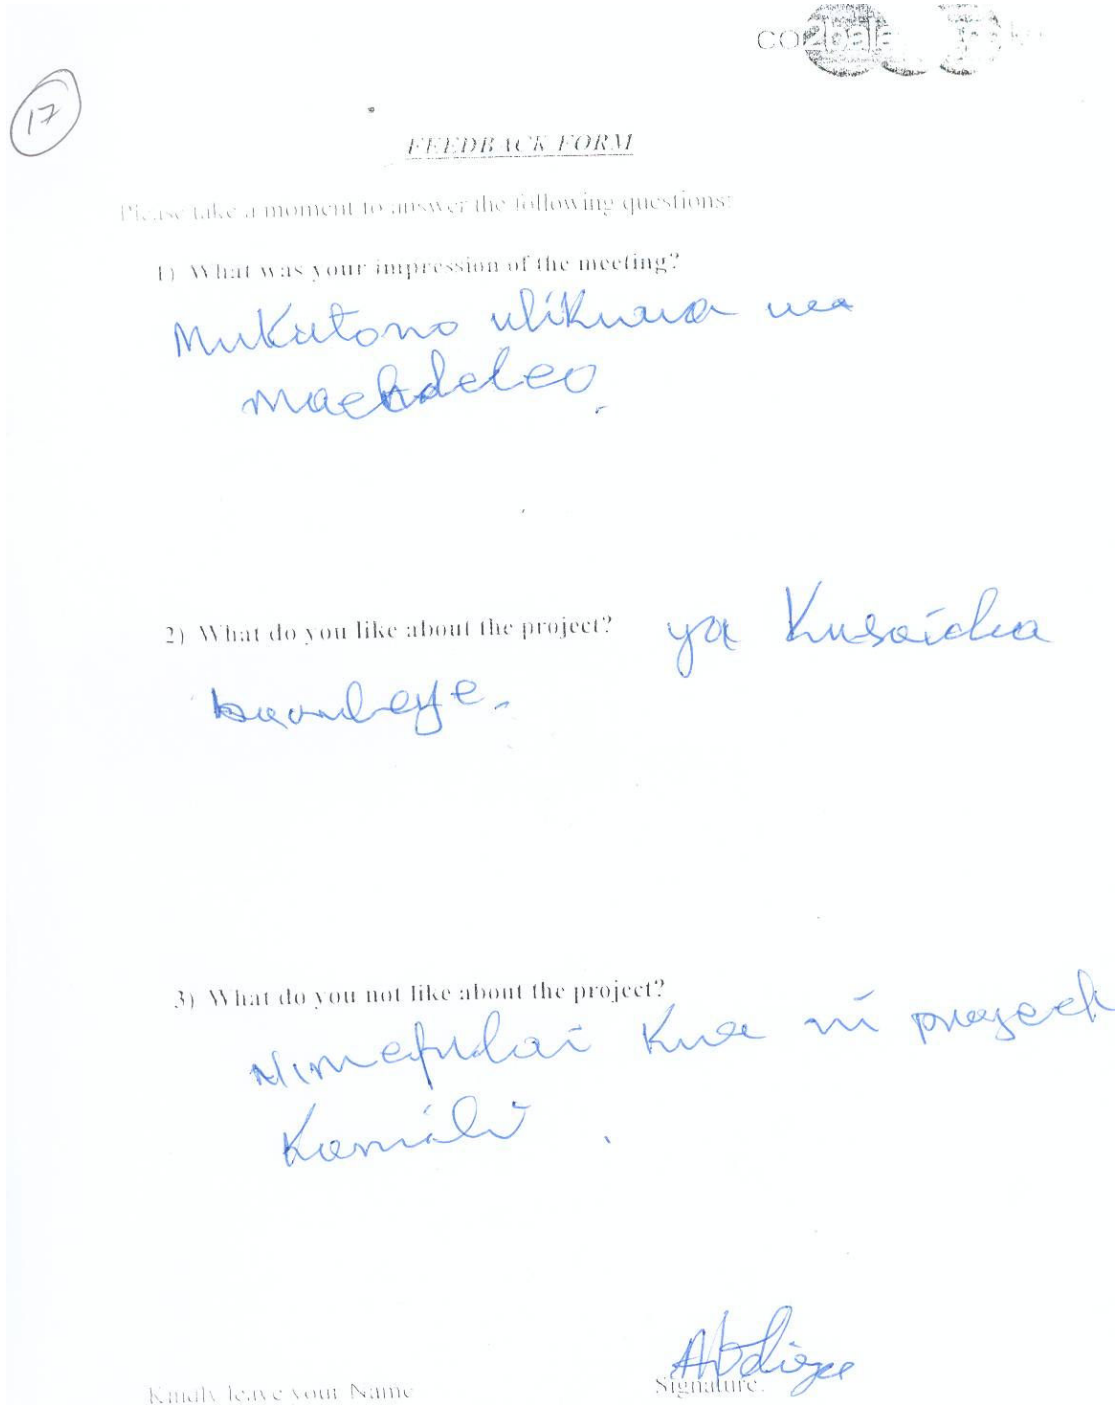 17
FEEDBACK FORM
Please take a moment to answer the following questions:
1) What was your impression of the meeting?
Mukutono ulikuwa wa
maendeleo.
2) What do you like about the project? ya Kusaidia
3) What do you not like about the project?
Nimefulai Kwa ni
Kamili.
Kindly leave your Name
Signature.